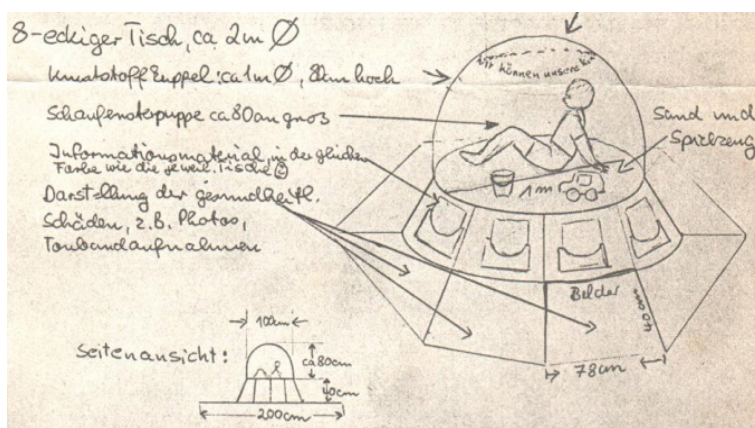 8-eckiger Tisch, ca 2m Ø
Kunststoffkuppel: ca 1m Ø, 80cm hoch
Schaufensterpuppe ca 80cm gros
Informationsmaterial, in der gleichen
Farbe wie die jeweil. Tische
Darstellung der gesundheitl.
Schäden, z.B. Photos,
Tonbandaufnahmen
Wir können unsere
Sand und
Spielzeug
1m
Bilder
40cm
78cm
Seitenansicht:
100cm
ca 80cm
40cm
200cm